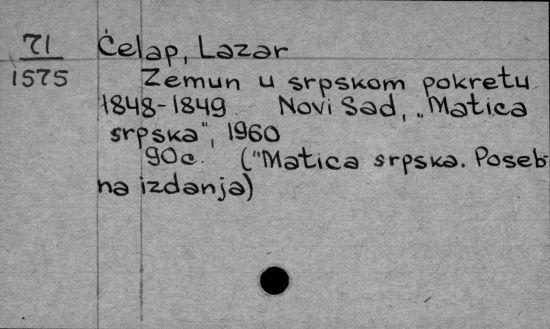 71
1575
Ćelap, Lazar
Zemun u srpskom pokretu
1848-1849. Novi Sad, „Matica
srpska", 1960
90c. ("Matica srpska. Poseb-
na izdanja)